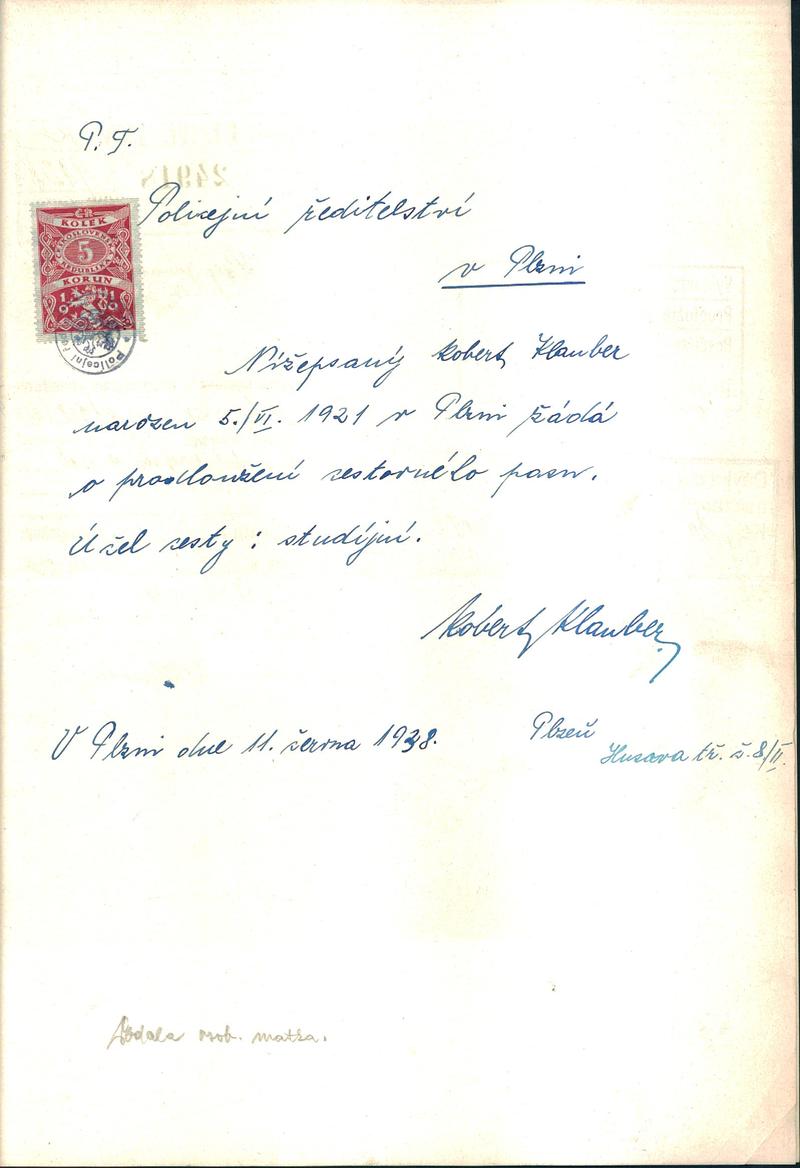 P. T.
Policejní ředitelství
v Plzni
ČR
KOLEK
ČESKOSLOVENSKÁ
5
REPUBLIKA
KORUN
Policejní
Nížepsaný Robert Klauber
narozen 5./VI. 1921 v Plzni žádá
o prodloužení cestovného pasu.
Účel cesty : studijní.
Robert Klauber
V Plzni dne 11. června 1938.
Plzeň
Husova tř. č. 8/II.
Podala osob. matka.